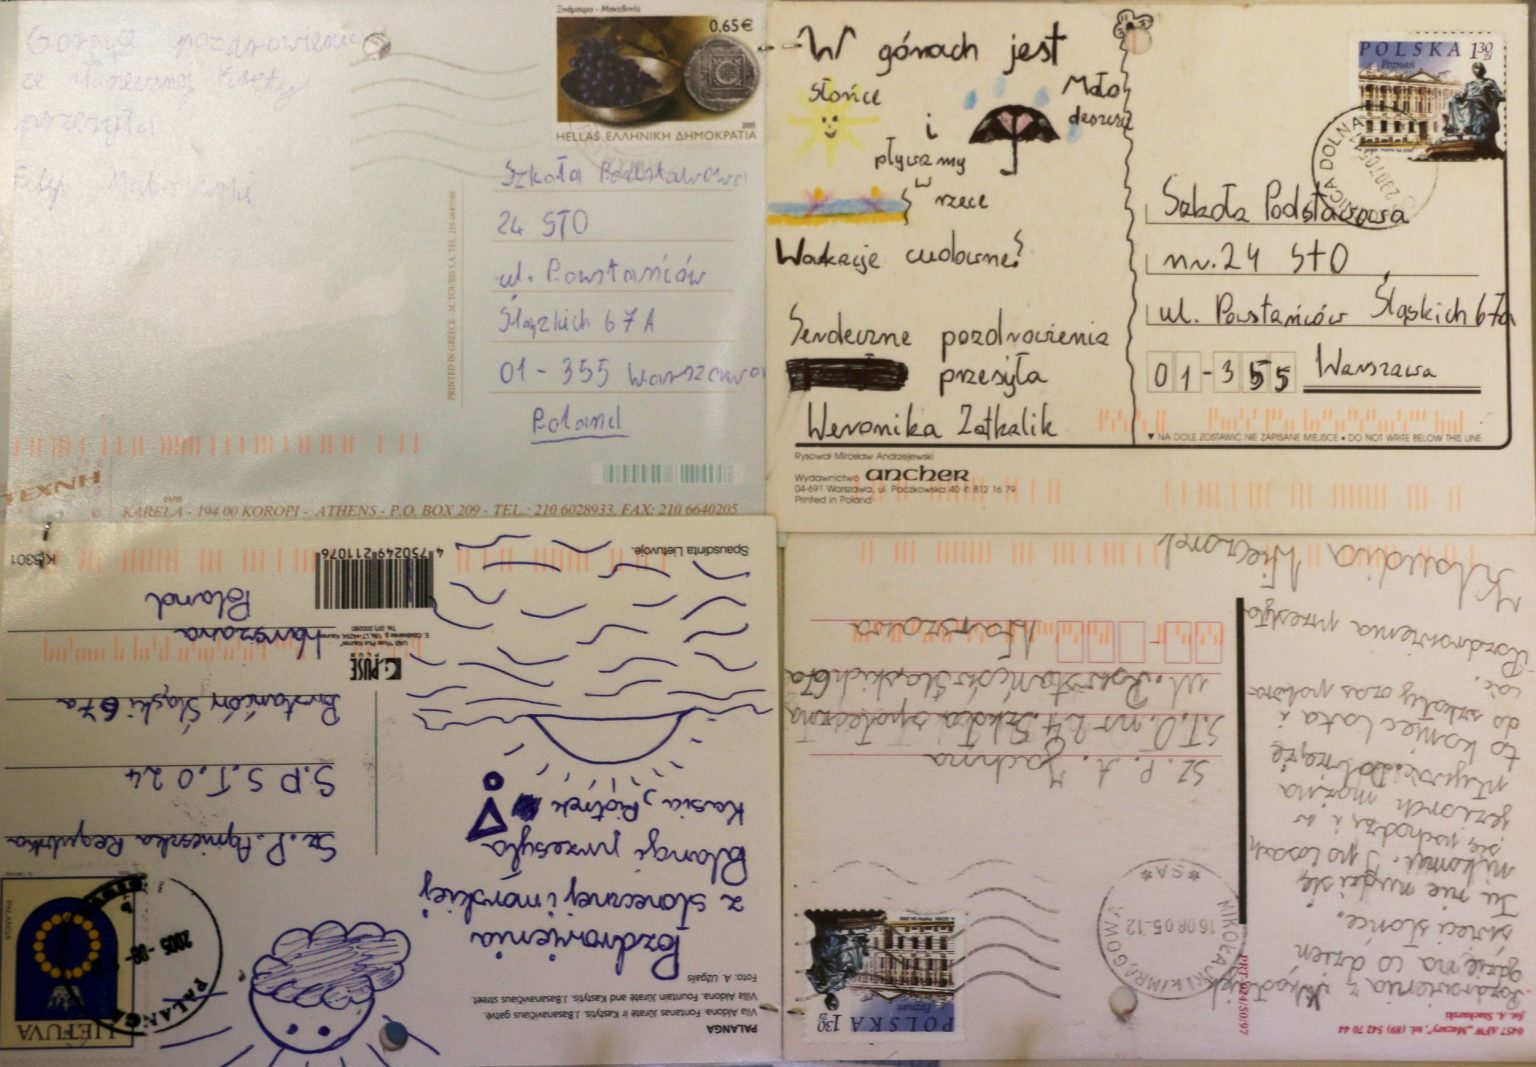 Gorące pozdrowienia
ze słonecznej Krety
przesyła
Ξινόμαυρο - Μακεδονία
0,65€
2005
HELLAS ΕΛΛΗΝΙΚΗ ΔΗΜΟΚΡΑΤΙΑ
Szkoła Podstawowa
24 STO
ul. Powstańców
Śląskich 67A
01-355 Warszawa
Poland
PRINTED IN GREECE - M. TOUBIS S.A. TEL. 210
ΤΕΧΝΗ
© KARELA - 194 00 KOROPI - ATHENS - P.O. BOX 209 - TEL.: 210 6028933, FAX: 210 6640205
W górach jest
słońce
Mało
deszczu
i
pływamy
w
rzece
Wakacje cudowne!
Serdeczne pozdrowienia
przesyła
Weronika Zatkalik
POLSKA 1 30 zł
Poznań
Szkoła Podstawowa
nr. 24 STO
ul. Powstańców Śląskich 67a
01-355 Warszawa
▼ NA DOLE ZOSTAWIĆ NIE ZAPISANE MIEJSCE • DO NOT WRITE BELOW THIS LINE
Rysował Mirosław Andrzejewski
Wydawnictwo ancher
04-691 Warszawa, ul. Paczkowska 40 ✆ 812 16 79
Printed in Poland
PALANGA
Vila Aldona. Fontanas Jūratė ir Kastytis. J.Basanavičiaus gatvė.
Villa Aldona. Fountain Jūratė and Kastytis. J.Basanavičiaus street.
Foto: A. Užgalis
Pozdrowienia
z słonecznej i morskiej
Palangi przesyła
Kasia, Piotrek
LIETUVA
PALANGA
2005-08-
Sz. P. Agnieszka
S.P S.T.O 24
Powstańców Śląski 67a
Warszawa
Poland
MUSĖ
4 750249 211076
Spausdinta Lietuvoje.
K 5301
Pozdrowienia z
gdzie na co dzień
świeci słońce.
Tu nie nudzi się
nikomu. I po lasach
się pochodzi, i w
jeziorach można
pływać. Dobrze, że
to koniec lata i
do szkoły czas wielki
iść.
Pozdrowienia przesyła
Klaudia Wieczorek
POLSKA 1 30 zł
Poznań
MIKOŁAJKI K/MRĄGOWA
16.08.05-12
*SA*
Sz. P. A. Jachna
S.T.O. nr 24 Szkoła społeczna
ul. Powstańców Śląskich 67a
Warszawa
PRT-024/50/97